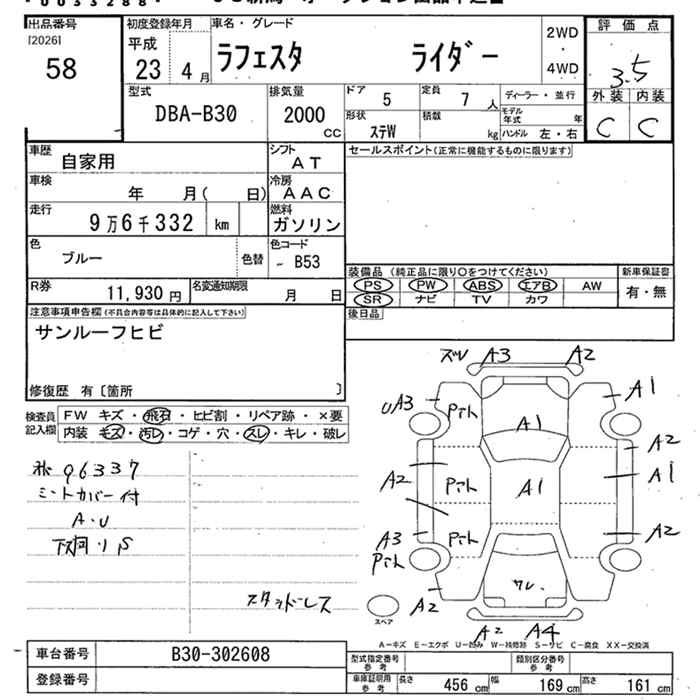 出品番号
[2026]
58
初度登録年月
平成
23年4月
車名・グレード
ラフェスタ ライダー
2WD
・
4WD
評価点
3.5
外装 内装
C C
型式
DBA-B30
排気量
2000
CC
ドア
5
定員
7人
ディーラー・並行
形状
ステW
積載
kg
モデル年式
年
ハンドル 左・右
車歴
自家用
シフト
AT
車検
年 月( 日)
冷房
AAC
走行
9万6千332 km
燃料
ガソリン
色
ブルー
色替
色コード
- B53
R券
11,930円
名変通知期限
月 日
セールスポイント(正常に機能するものに限ります)
装備品 (純正品に限り○をつけてください)
新車保証書
PS PW ABS エアB AW
有・無
SR ナビ TV カワ
後日品
注意事項申告欄(不具合内容等は具体的に記入して下さい)
サンルーフヒビ
修復歴 有〔箇所 〕
検査員
記入欄
FW キズ・飛石・ヒビ割・リペア跡・×要
内装 キズ・汚レ・コゲ・穴・スレ・キレ・破レ
96337
シートカバー付
A・U
スタッドレス
ズレ A3 A2
UA3 Pтh A1 A1
A2 A2
Pтh A1 A1
A3 Pтh A2
Pтh
A2 ワレ
スペア
A2 A4
A-キズ E-エクボ U-凹み W-補修跡 S-サビ C-腐食 XX-交換済
車台番号
B30-302608
登録番号
型式指定番号
参考
類別区分番号
参考
車庫証明用
参考
長さ 456cm 幅 169cm 高さ 161cm